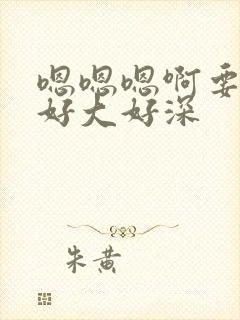 嗯嗯嗯啊要
好大好深
朱黄